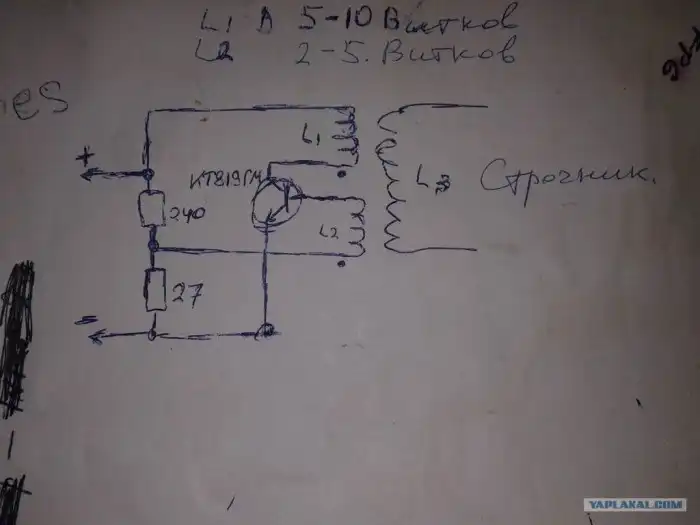 L1 В 5-10 Витков
L2 2-5. Витков
es
L1
+
КТ819ГМ
L3 Строчник.
240
L2
27
-
YAPLAKAL.COM